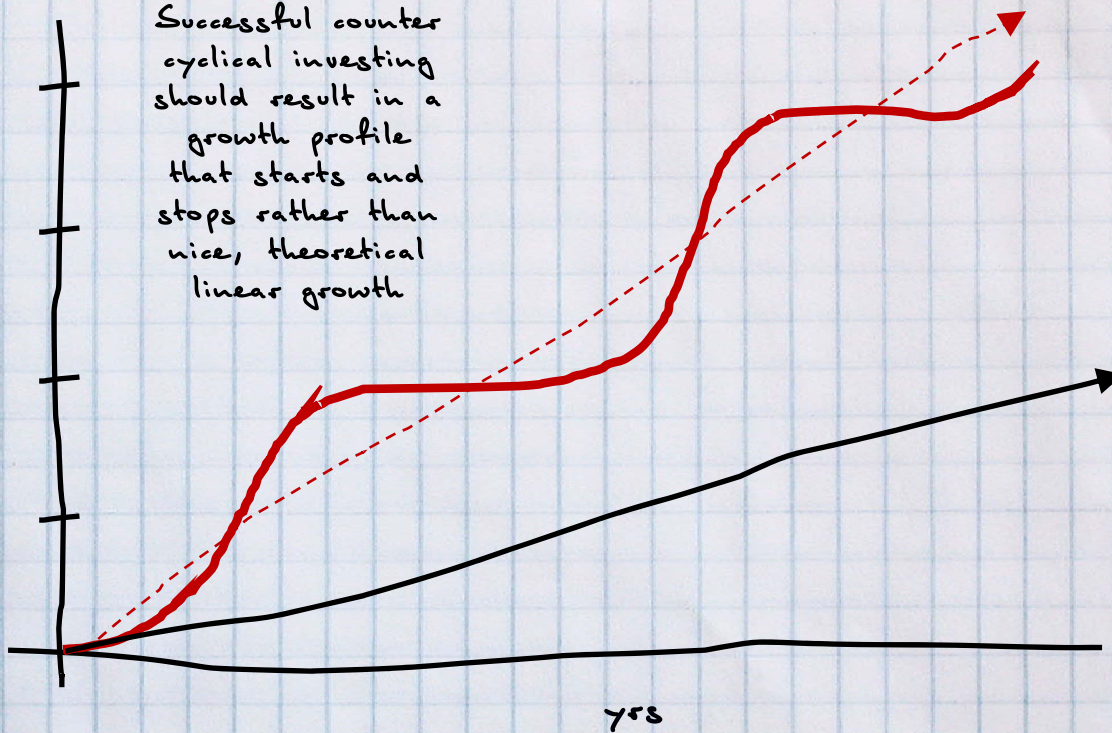 Successful counter
cyclical investing
should result in a
growth profile
that starts and
stops rather than
nice, theoretical
linear growth
yrs